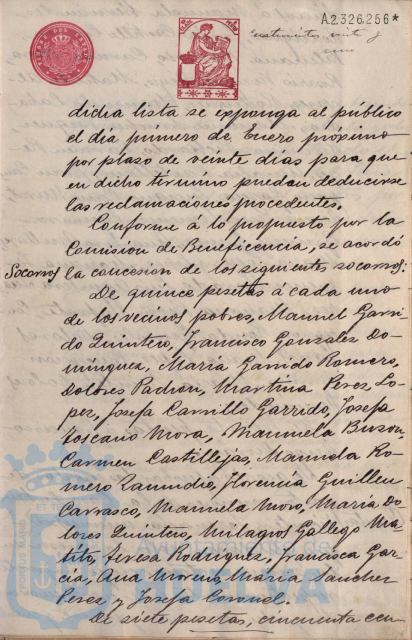 A2326256*
dicha lista se exponga al público
el dia primero de Enero próximo
por plazo de veinte dias para que
en dicho término puedan deducirse
las reclamaciones procedentes.
Conforme á lo propuesto por la
Comision de Beneficencia, se acordó
Socorros
la concesion de los siguientes socorros:
De quince pesetas á cada uno
de los vecinos pobres, Manuel Garri-
do Quintero, Francisco Gonzales Do-
minguez, María Garrido Romero,
Dolores Padron, Martina Perez Lo-
pez, Josefa Carrillo Garrido, Josefa
Toscano Mora, Manuela
Carmen Castillejas, Manuela Ro-
mero Zamudio, Florencia Guillen
Carrasco, Manuela Moro, María Do-
lores Quintero, Milagros Gallego Ma-
tito, Teresa Rodriguez, Francisca Gar-
cia, Ana Moreno, María Sanchez
Perez y Josefa Coronel.
De siete pesetas, cincuenta cen-